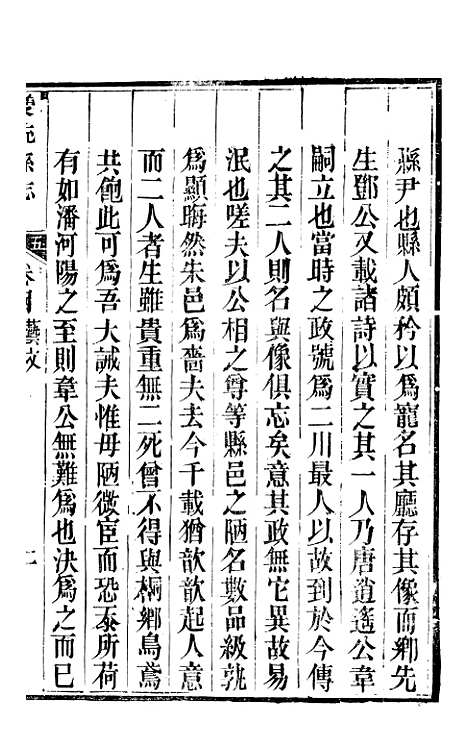 縣尹也縣人頗矜以為寵名其廳存其像而鄉先
生鄧公又載諸詩以實之其一人乃唐逍遙公韋
嗣立也當時之政號為二川最人以故到於今傳
之其二人則名與像俱忘矣意其政無它異故易
泯也嗟夫以公相之尊等縣邑之陋名數品級孰
為顯晦然朱邑為嗇夫去今千載猶歆歆起人意
而二人者生雖貴重無二死曾不得與桐鄉鳥鳶
共飽此可為吾大誡夫惟毋陋微宦而恐忝所荷
有如潘河陽之至則韋公無難為也決為之而已
縣志 卷四藝文 二